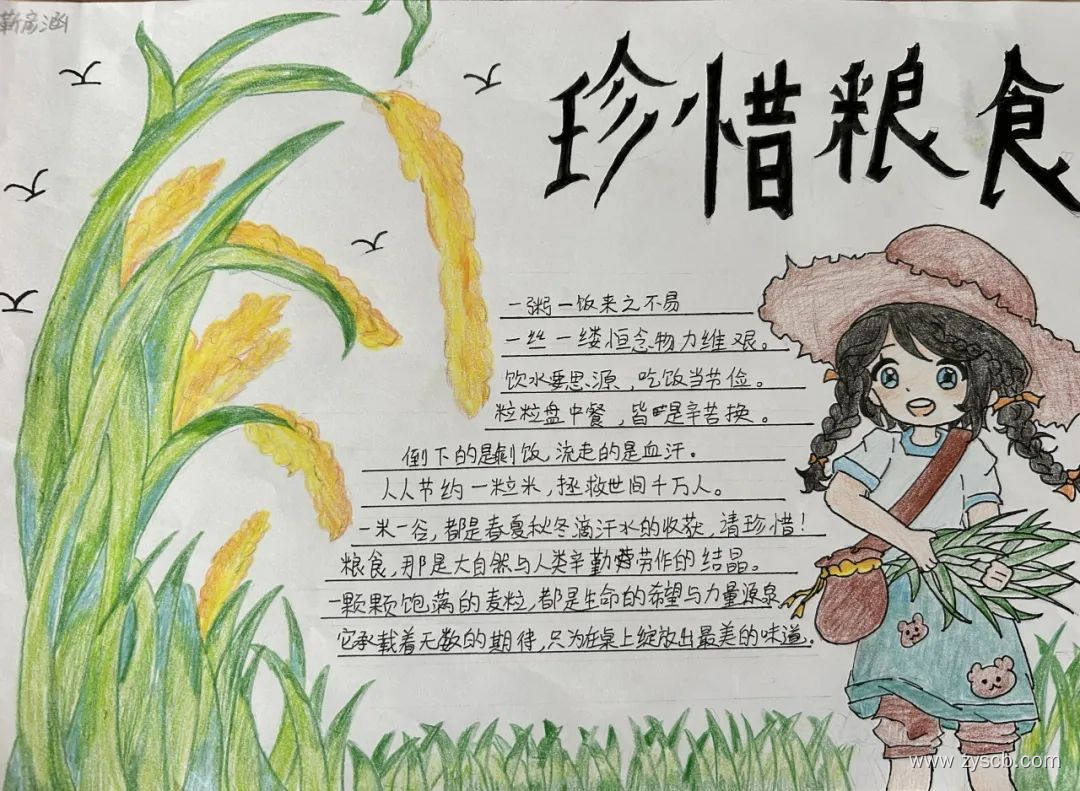 靳彦涵
珍惜粮食
一粥一饭来之不易
一丝一缕恒念物力维艰。
饮水要思源，吃饭当节俭。
粒粒盘中餐，皆是辛苦换。
倒下的是剩饭，流走的是血汗。
人人节约一粒米，拯救世间千万人。
一米一谷，都是春夏秋冬滴汗水的收获，请珍惜！
粮食，那是大自然与人类辛勤劳作的结晶。
一颗颗饱满的麦粒，都是生命的希望与力量源泉，
它承载着无数的期待，只为在桌上绽放出最美的味道。
www.zyscb.com